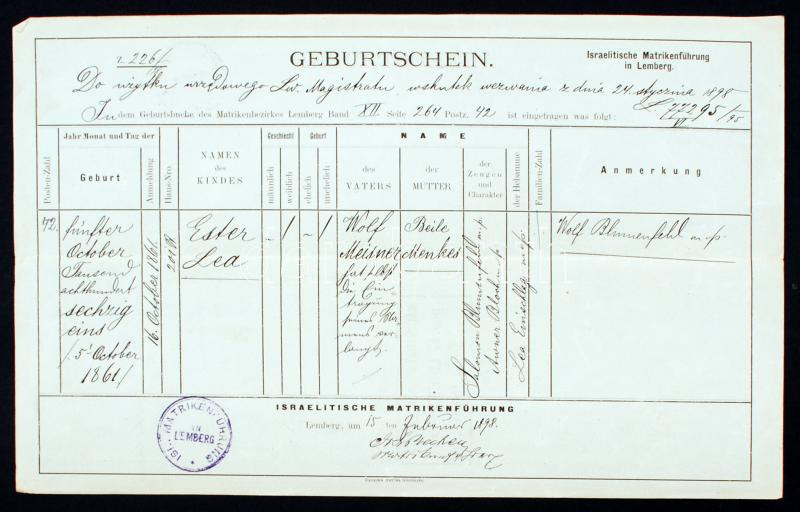 z. 226/
GEBURTSCHEIN.
Israelitische Matrikenführung
in Lemberg.
Do użytku urzędowego Św. Magistratu, wskutek wezwania z dnia 24. stycznia 1898
L. 77295/95
VI
In dem Geburtsbuche des Matrikenbezirkes Lemberg Band VII Seite 264 Postz. 42 ist eingetragen was folgt:
Posten-Zahl
Jahr Monat und Tag der
Geburt
Anmeldung
Haus-Nro
NAMEN
des
KINDES
Geschlecht
männlich
weiblich
Geburt
ehelich
unehelich
NAME
des
VATERS
der
MUTTER
der
Zeugen
und
Charakter
der Hebamme
Familien-Zahl
Anmerkung
42.
fünfter
October
Tausend
achthundert
sechzig
eins
/5' October
1861/
16. October 1861
Ester
Lea
Wolf
Meisner
hat selbst
die Ein-
tragung
seines Na-
mens ver-
langt.
Beile
Menkes
Salomon Blumenfeld m/p.
Awner Bloch m/p
Lea Einschlag m/p.
Wolf Blumenfeld m/p.
ISRAELITISCHE MATRIKENFÜHRUNG
Lemberg, am 15 ten Februar 1898.
ISR. MATRIKENFÜHRUNG
IN
LEMBERG